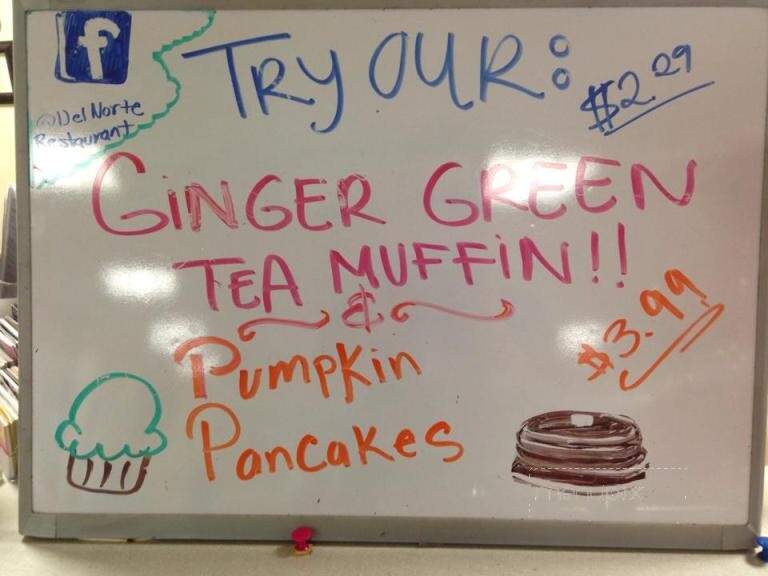 f
@Del Norte
Restaurant
TRY OUR:
$2.29
GINGER GREEN
TEA MUFFIN!!
&
$3.99
Pumpkin
Pancakes
menupix